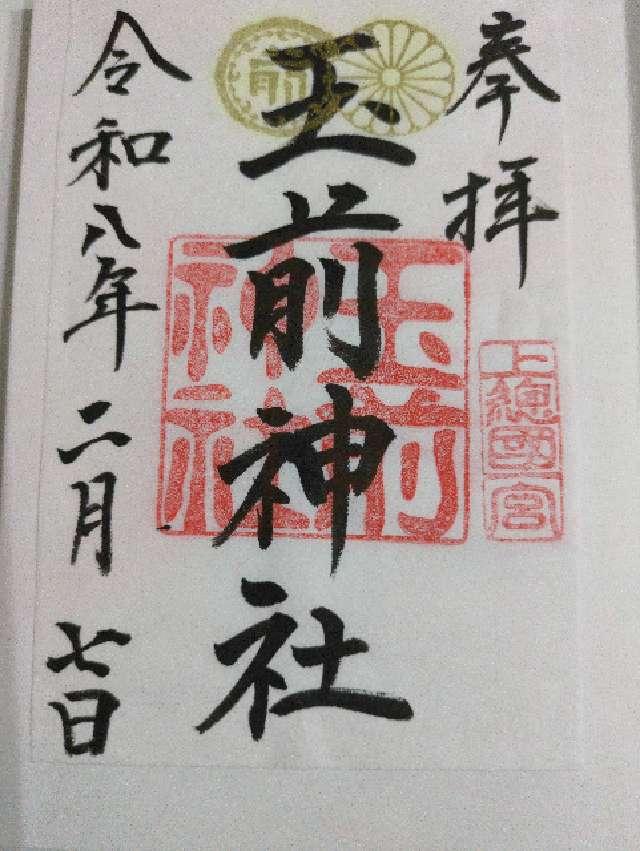 奉拝
上總國一宮
玉前神社
玉前神社
令和八年二月七日